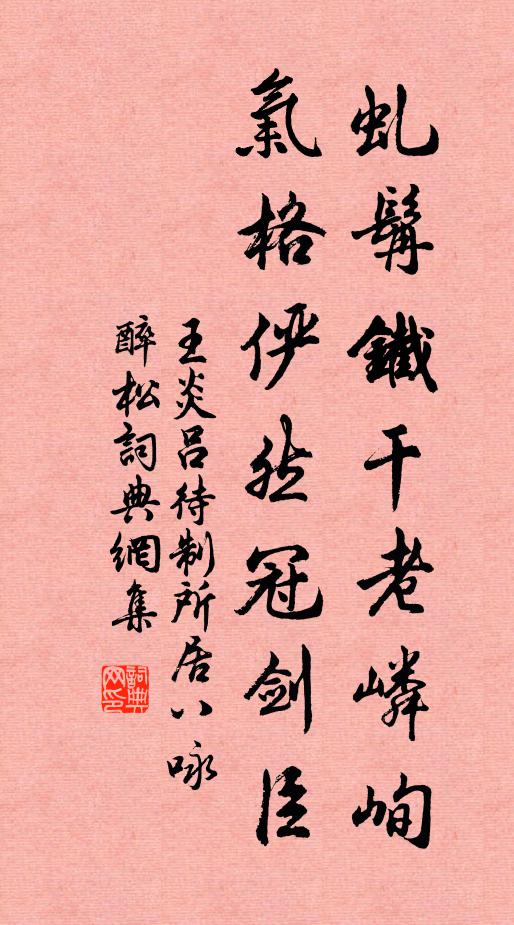 虬髯鐵干老嶙峋
氣格俨然冠剑臣
王炎吕待制所居八咏
醉松詞典網集
詞典网印